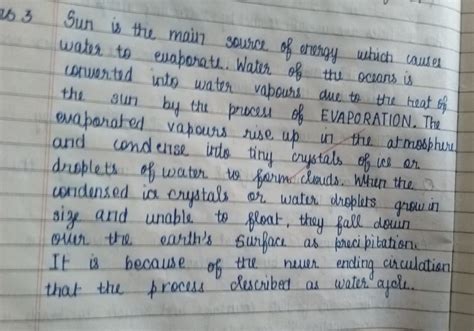 Sun is the main source of energy which causes
water to evaporate. Water of the oceans is
converted into water vapours due to the heat of
the sun by the process of EVAPORATION. The
evaporated vapours rise up in the atmosphere
and condense into tiny crystals of ice or
droplets of water to form clouds. When the
condensed ice crystals or water droplets grow in
size and unable to float, they fall down
over the earth's surface as precipitation.
It is because of the never ending circulation
that the process described as water cycle.